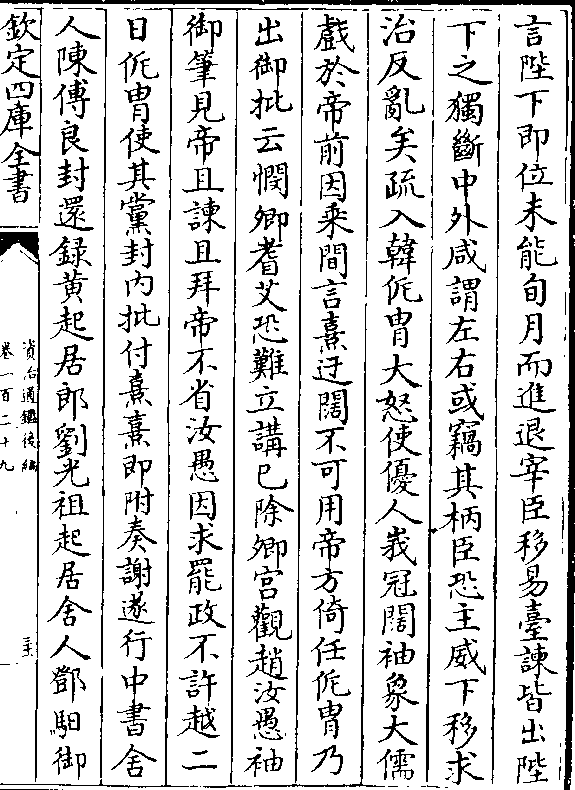 言陛下即位未能旬月而進退宰臣移易臺諫皆出陛
下之獨斷中外咸謂左右或竊其柄臣恐主威下移求
治反亂矣疏入韓侂胄大怒使優人峩冠闊袖象大儒
戲於帝前因乘間言熹迂闊不可用帝方倚任侂胄乃
出御批云憫卿耆艾恐難立講已除卿宫觀趙汝愚袖
御筆見帝且諫且拜帝不省汝愚因求罷政不許越二
日侂胄使其黨封内批付熹熹即附奏謝遂行中書舍
人陳傅良封還録黄起居郎劉光祖起居舍人鄧馹御
欽定四庫全書
資治通鑑後編
卷一百二十九